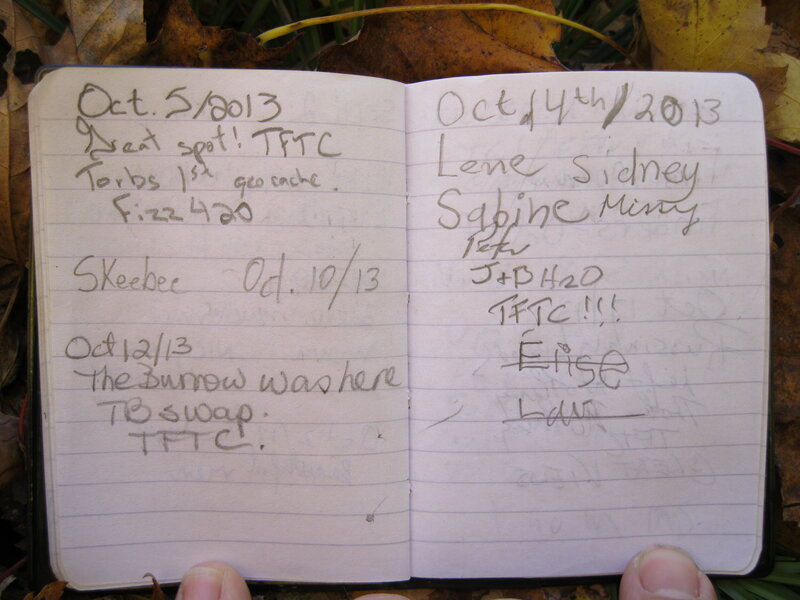 Oct. 5/2013
Great spot! TFTC
Torbs 1st geocache.
Fizz420
Skeebee Oct. 10/13
Oct 12/13
The Burrow was here
TB swap.
TFTC.
Oct, 4th/2013
Lene Sidney
Sabine Missy
Peter
J+B H2O
TFTC!!!